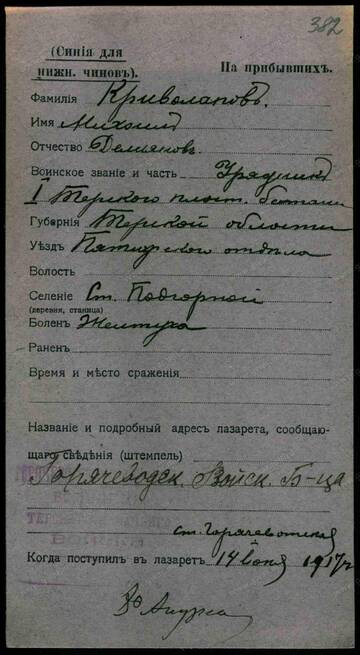 382
(Синія для
нижн. чиновъ).
На прибывшихъ.
Фамилія Криволаповъ.
Имя Михаилъ
Отчество Демьяновъ.
Воинское званіе и часть Урядникъ
I Терского пласт. баталіи
Губернія Терской области
Уѣздъ Пятигорского отдѣла
Волость
Селеніе Ст. Подгорной
(деревня, станица)
Боленъ Желтуха
Раненъ
Время и мѣсто сраженія
Названіе и подробный адресъ лазарета, сообщаю-
щаго свѣдѣнія (штемпель)
Горячеводск. Войск. Б-ца
ст. Горячеводская
Когда поступилъ въ лазаретъ 14 юня 1917 г